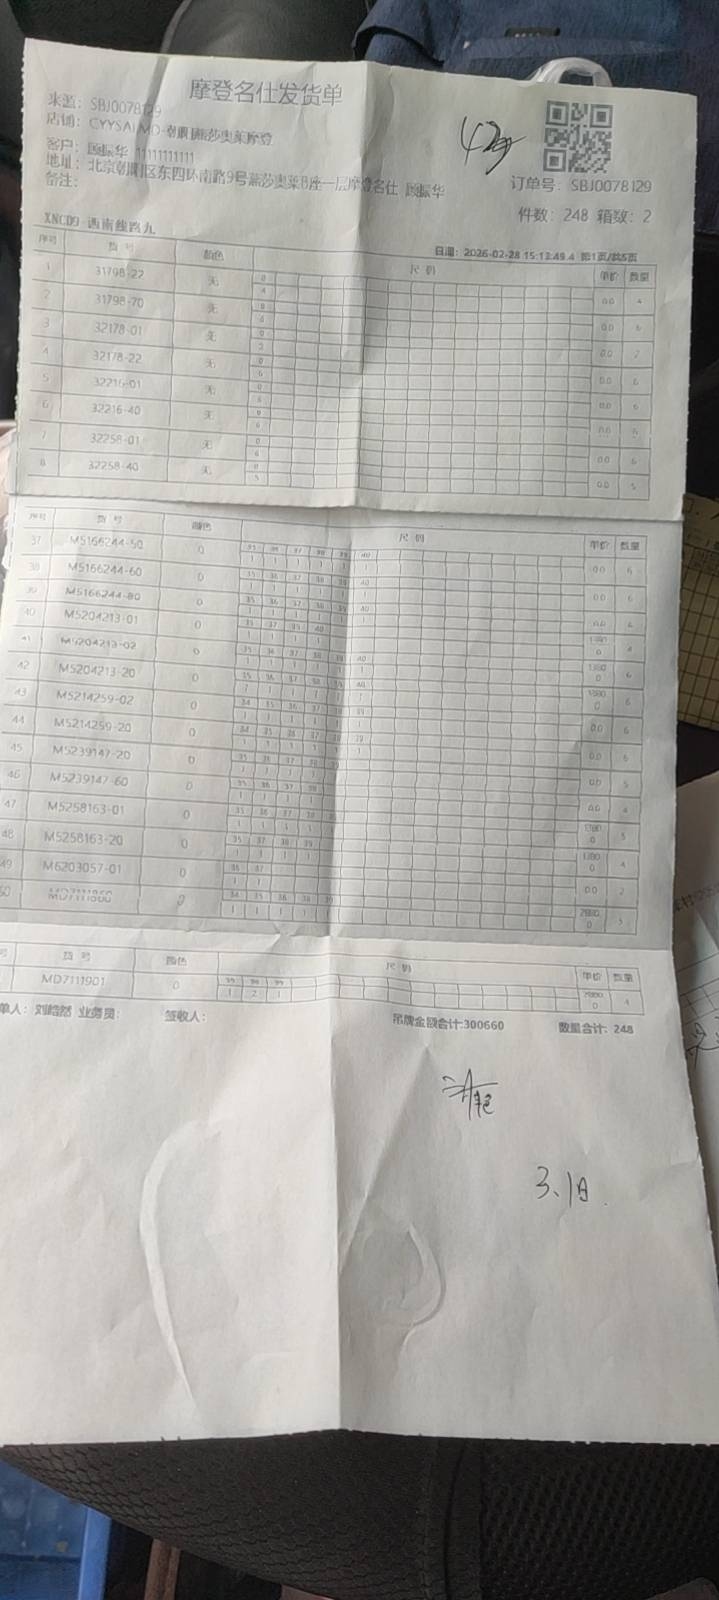 摩登名仕发货单
来源： SBJ0078129
店铺： CYYSALMD-朝阳燕莎奥莱摩登
客户： 顾振华 11111111111
地址： 北京朝阳区东四环南路9号燕莎奥莱B座一层摩登名仕 顾振华
备注：
订单号： SBJ0078129
件数： 248 箱数： 2
XNCD9 西南线路九
日期： 2026-02-28 15:13:49.4 第1页/共5页
序号 货号 颜色 尺码 单价 数量
1 31798-22 无 0 4 0.0 4
2 31798-70 无 0 6 0.0 6
3 32178-01 无 0 2 0.0 2
4 32178-22 无 0 6 0.0 6
5 32216-01 无 0 6 0.0 6
6 32216-40 无 0 6 0.0 6
7 32258-01 无 0 6 0.0 6
8 32258-40 无 0 5 0.0 5
序号 货号 颜色 尺码 单价 数量
37 M5166244-50 0 35 36 37 38 39 40 1 1 1 1 1 1 0.0 6
38 M5166244-60 0 35 36 37 38 39 40 1 1 1 1 1 1 0.0 6
39 M5166244-80 0 35 36 37 38 39 40 1 1 1 1 1 1 0.0 6
40 M5204213-01 0 35 37 39 40 1 1 1 1 4
41 M5204213-02 0 35 36 37 38 39 40 1 1 1 1 1 1 6
42 M5204213-20 0 35 36 37 38 39 40 6
43 M5214259-02 0 34 35 36 37 38 39 1 1 1 1 1 1 0.0 6
44 M5214259-20 0 34 35 36 37 38 39 1 1 1 1 1 1 0.0 6
45 M5239147-20 0 35 36 37 38 39 1 1 1 1 1 0.0 5
46 M5239147-60 0 35 36 37 38 1 1 1 1 0.0 4
47 M5258163-01 0 35 36 37 38 39 1 1 1 1 1 5
48 M5258163-20 0 35 37 38 39 1 1 1 1 4
49 M6203057-01 0 36 37 1 1 0.0 2
50 MD7111860 0 34 35 36 38 39 1 1 1 1 1 5
号 货号 颜色 尺码 单价 数量
MD7111901 0 1 2 1 4
单人： 刘皓然 业务员： 签收人： 吊牌金额合计:300660 数量合计: 248
3.1日